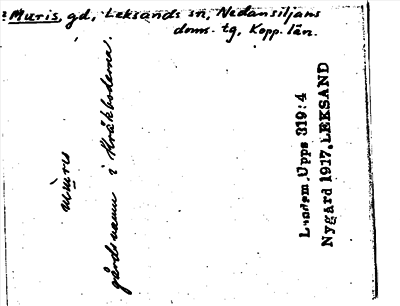 : Muris, gd, Leksands sn, Nedansiljans
doms. tg, Kopp. län.
mùris
gårdsnamn i Kråkbodarna.
Landsm. Upps 319:4
Nygård 1917. LEKSAND